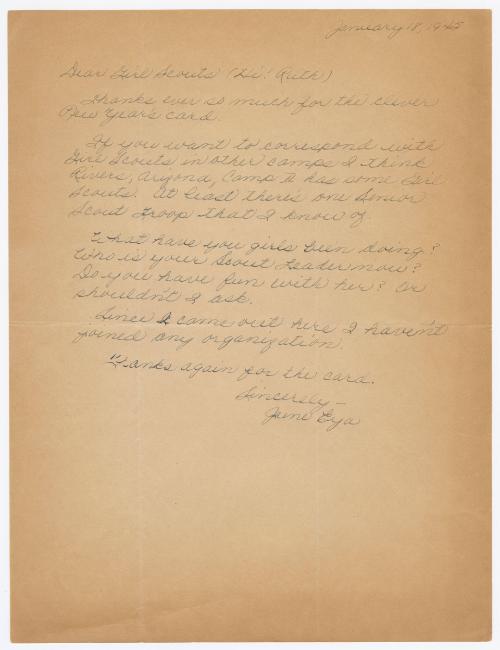 January 18, 1945
Dear Girl Scouts (Hi! Ruth)
Thanks ever so much for the clever
New Years card.
If you want to correspond with
Girl Scouts in other camps I think
Rivers, Arizona, Camp II has some Girl
Scouts. At least there's one Senior
Scout Troop that I know of.
What have you girls been doing?
Who is your Scout Leader now?
Do you have fun with her? Or
shouldn't I ask.
Since I came out here I haven't
joined any organization.
Thanks again for the card.
Sincerely—
June